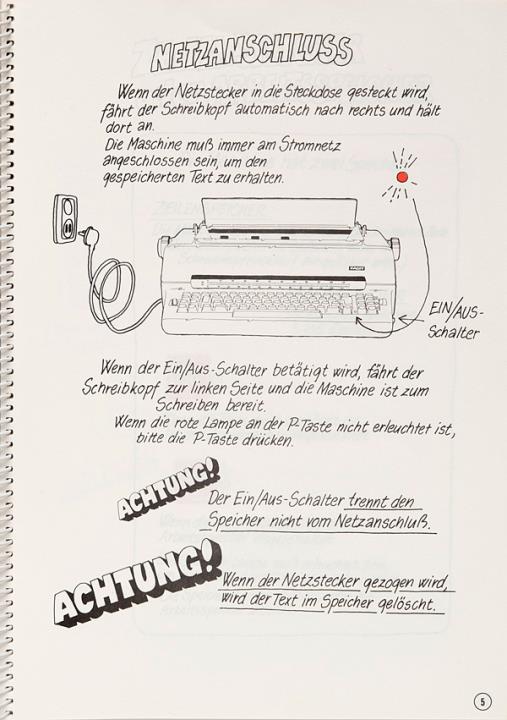 NETZANSCHLUSS
Wenn der Netzstecker in die Steckdose gesteckt wird,
fährt der Schreibkopf automatisch nach rechts und hält
dort an.
Die Maschine muß immer am Stromnetz
angeschlossen sein, um den
gespeicherten Text zu erhalten.
EIN/AUS-
Schalter
Wenn der Ein/Aus-Schalter betätigt wird, fährt der
Schreibkopf zur linken Seite und die Maschine ist zum
Schreiben bereit.
Wenn die rote Lampe an der P-Taste nicht erleuchtet ist,
bitte die P-Taste drücken.
ACHTUNG!
Der Ein/Aus-Schalter trennt den
Speicher nicht vom Netzanschluß.
ACHTUNG!
Wenn der Netzstecker gezogen wird,
wird der Text im Speicher gelöscht.
5